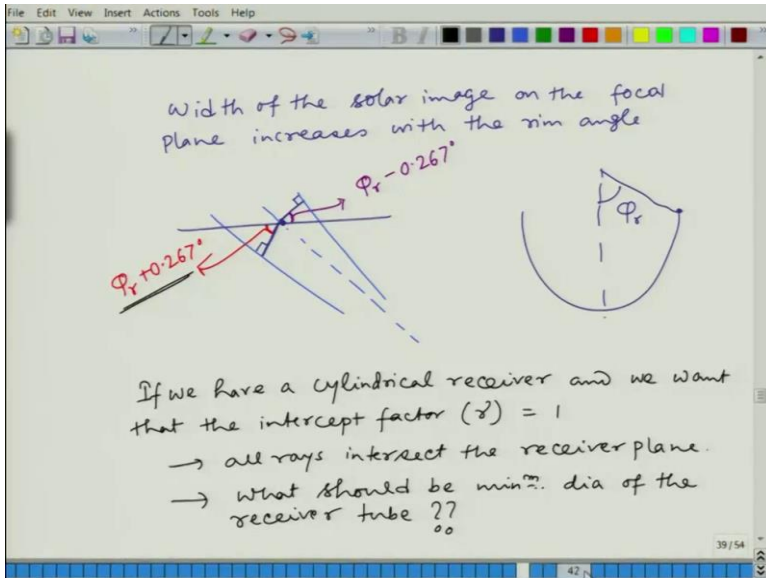 File Edit View Insert Actions Tools Help
width of the solar image on the focal
plane increases with the rim angle
φr - 0.267°
φr + 0.267°
φr
If we have a cylindrical receiver and we want
that the intercept factor (γ) = 1
→ all rays intersect the receiver plane.
→ what should be minm. dia of the
receiver tube ??
39/54
42